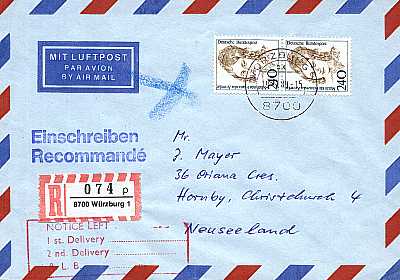 MIT LUFTPOST
PAR AVION
BY AIR MAIL
Deutsche Bundespost
Deutsche Bundespost
240
240
8700
Einschreiben
Recommandé
R
074 p
8700 Würzburg 1
Mr.
J. Mayer
36 Oriana Cres.
Hornby, Christchurch 4
Neuseeland
NOTICE LEFT
1st. Delivery
2nd. Delivery
P. L. B.